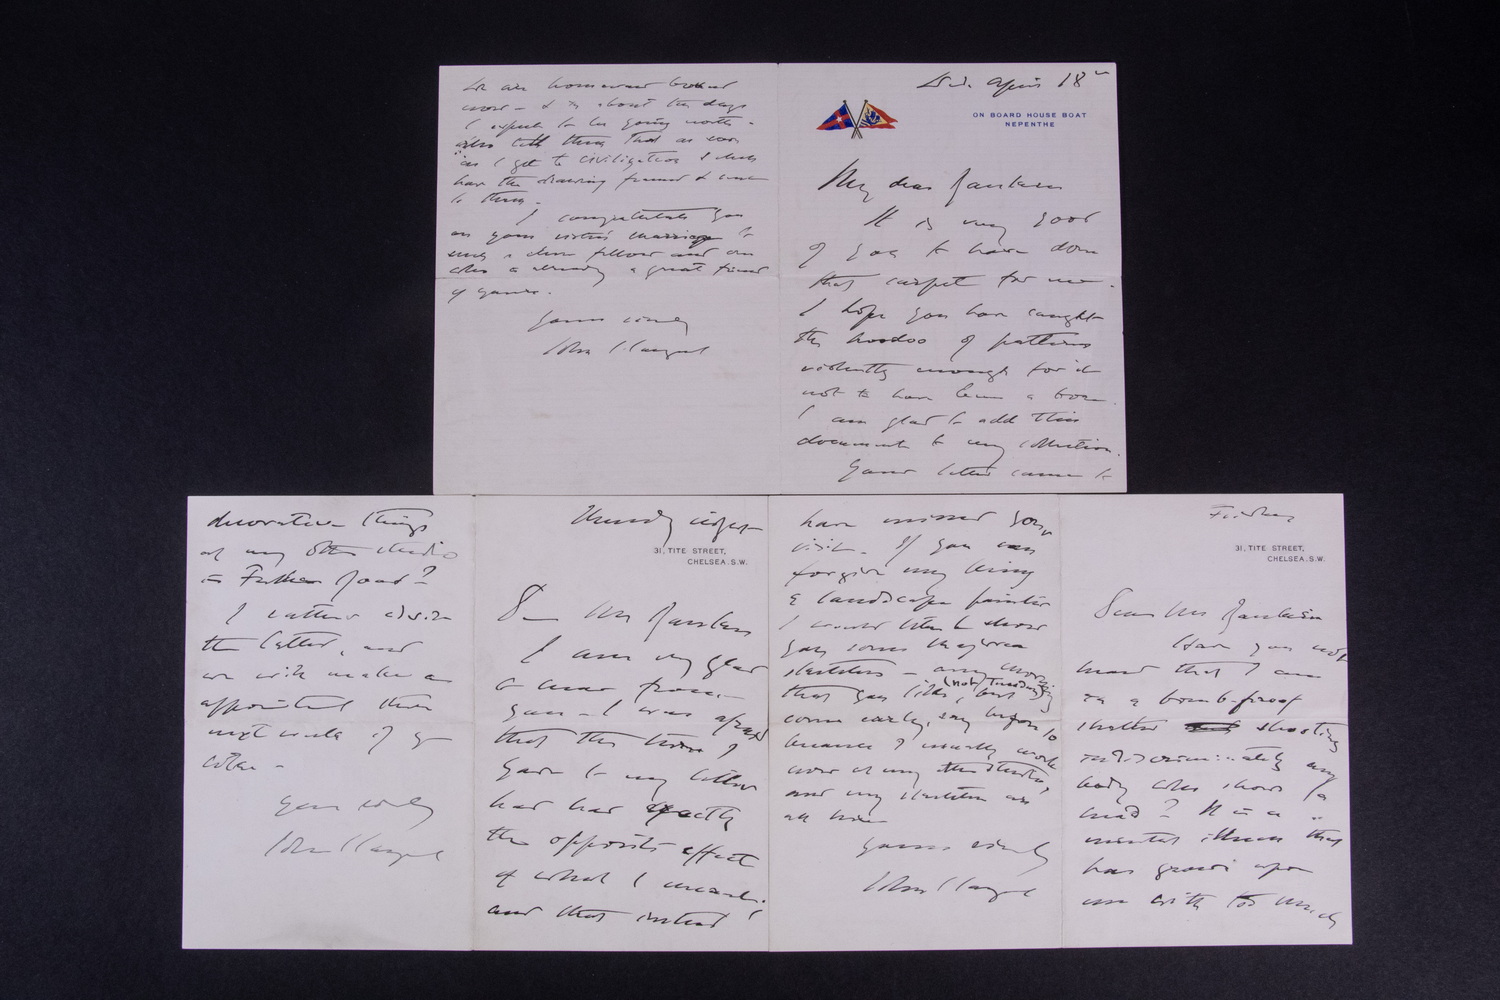 Wed. April 18th
ON BOARD HOUSE BOAT
NEPENTHE
My dear
It is very good
of you to have done
that carpet for me.
I hope you have caught
the hoodoo of patterns
violently enough for it
not to have been a bore.
I am glad to add this
document to my collection.
Your letter came to
We are homeward bound
now - & in about ten days
I expect to be going north -
also tell them that as soon
as I get to civilization I shall
have the drawing framed & sent
to them.
I congratulate you
on your sister's marriage to
such a clever fellow and one
who is already a great friend
of yours.
Yours sincerely
John S. Sargent
Friday
31, TITE STREET,
CHELSEA. S.W.
Dear Mrs
Have you not
heard that I am
in a bomb-proof
shelter shooting
indiscriminately any
body who shows a
head? It is a
mental illness that
has grown upon
me with too much
have missed your
visit. If you can
forgive my being
a landscape painter
I would like to show
you some Majorca
sketches - any morning
(not Tuesday)
that you like, but
come early, say before 10
because I usually work
now at my other studio,
and my sketches are
all here
Yours sincerely
John S. Sargent
Thursday night
31, TITE STREET,
CHELSEA. S.W.
Dear Mrs
I am very glad
to hear from
you - I was afraid
that the tone of
your to my letter
had had exactly
the opposite effect
of what I meant,
and that instead
decorative things
at my other studio
in Fulham Road?
I rather advise
the latter, and
we will make an
appointment then
next week if you
like -
Yours sincerely
John S. Sargent